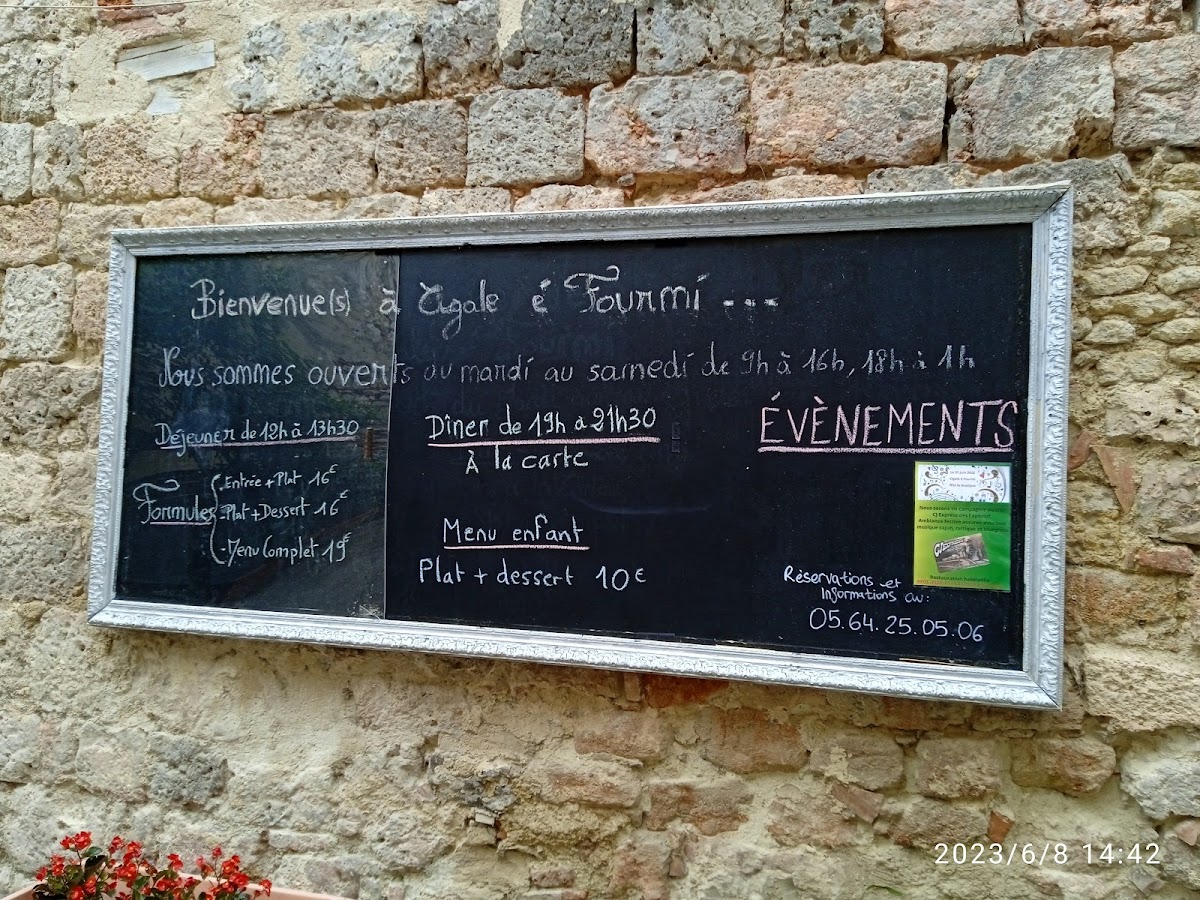 Bienvenue(s) à Cigale é Fourmi ...
Nous sommes ouverts du mardi au samedi de 9h à 16h, 18h à 1h
Déjeuner de 12h à 13h30
Formules
- Entrée + Plat 16€
- Plat + Dessert 16€
- Menu Complet 19€
Dîner de 19h à 21h30
À la carte
Menu enfant
Plat + dessert 10€
ÉVÈNEMENTS
Cigale é Fourmi
fête la musique
Ambiance festive
Restauration
Réservations et
Informations au:
05.64.25.05.06
2023/6/8 14:42